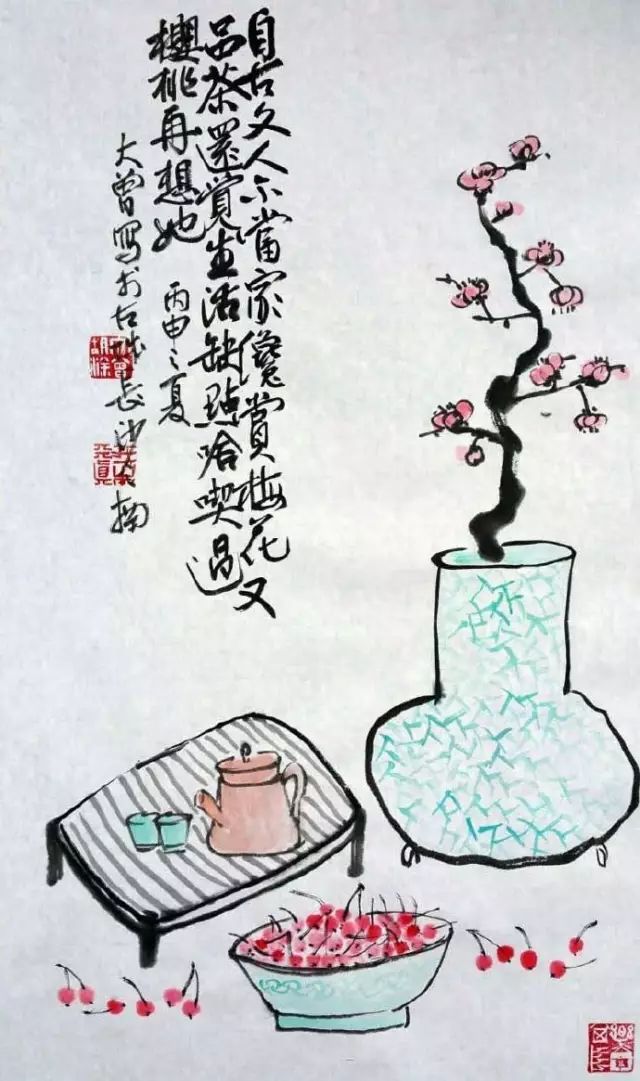 自古文人不當家纔賞梅花又
品茶還覺生活缺點啥喫過
櫻桃再想她
丙申之夏
大曾寫於古城長沙